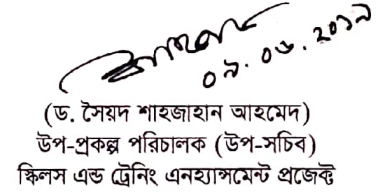 ০৯.০৬.২০১৯
(ড. সৈয়দ শাহজাহান আহমেদ)
উপ-প্রকল্প পরিচালক (উপ-সচিব)
স্কিলস এন্ড ট্রেনিং এনহ্যান্সমেন্ট প্রজেক্ট